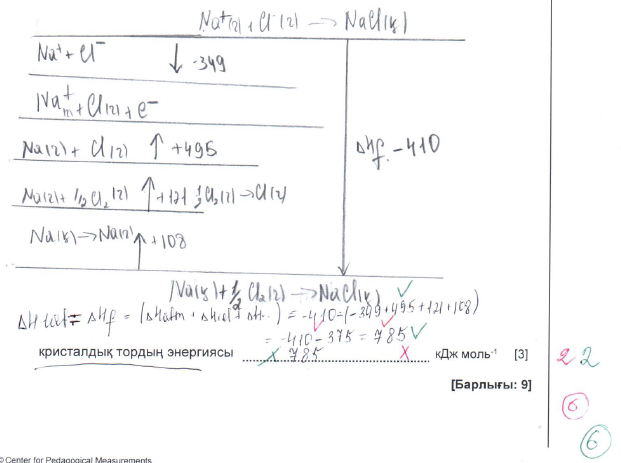 Na⁺(г) + Cl⁻(г) → NaCl(қ)
Na⁺ + Cl⁻ ↓ -349
Na⁺ + Cl(г) + e⁻
Na(г) + Cl(г) ↑ +495
ΔHf. -410
Na(г) + 1/2 Cl₂(г) ↑ +121 1/2 Cl₂(г) → Cl(г)
Na(қ) → Na(г) ↑ +108
Na(қ) + 1/2 Cl₂(г) → NaCl(қ)
ΔH lat = ΔHf = (ΔHatm + ΔH + ΔH..) = -410 = (-349 + 495 + 121 + 108)
= -410 - 375 = 785
кристалдық тордың энергиясы 785 кДж моль⁻¹ [3] 2 2
[Барлығы: 9]
6
6
© Center for Pedagogical Measurements